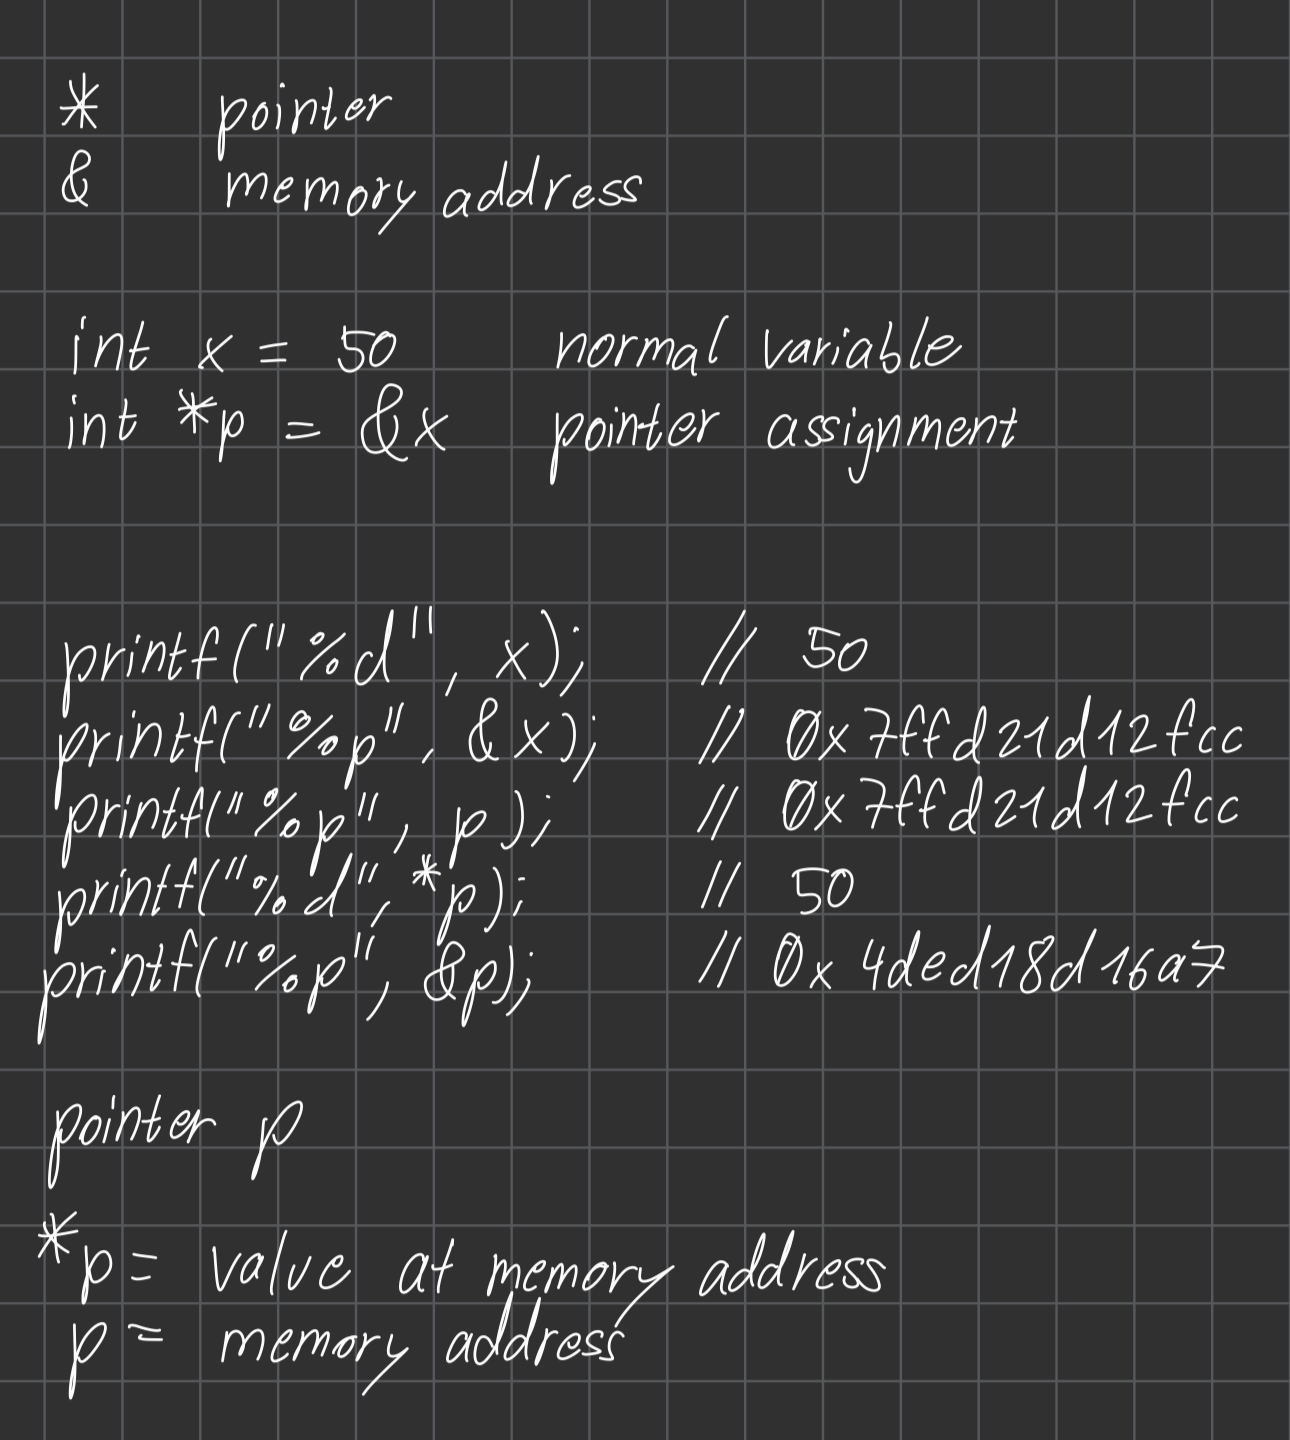 * pointer
& memory address
int x = 50 normal variable
int *p = &x pointer assignment
printf("%d", x); // 50
printf("%p", &x); // 0x7ffd21d12fcc
printf("%p", p); // 0x7ffd21d12fcc
printf("%d", *p); // 50
printf("%p", &p); // 0x4ded18d16a7
pointer p
*p = value at memory address
p = memory address